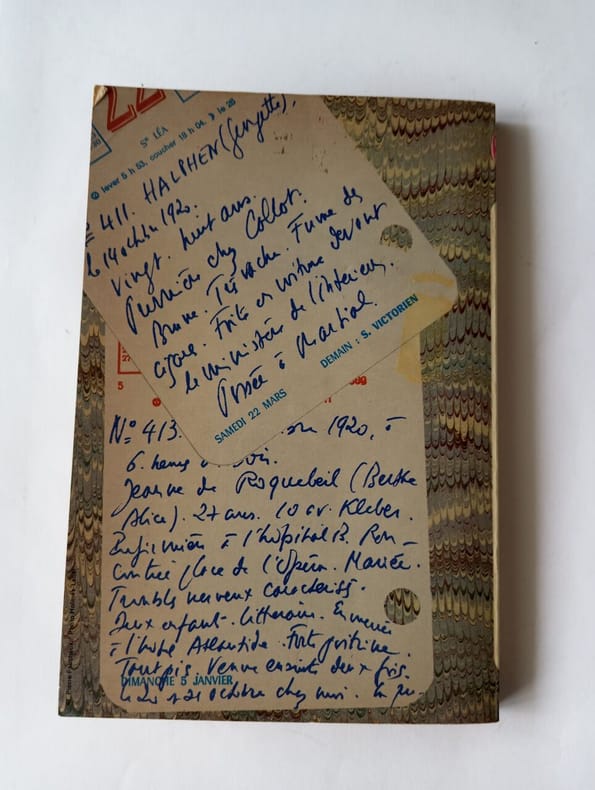 22
Sᵉ LÉA
lever 5 h 53, coucher 18 h 04, le 25
411. HALPHEN (Georgette),
le 14 octobre 1920.
Vingt-huit ans.
Première chez Collot.
Brune. Très vache. Fume des
cigares. Frite en voiture devant
le ministère de l'Intérieur.
Passée à Martial.
SAMEDI 22 MARS
DEMAIN : S. VICTORIEN
27
5
N° 413. 1920, à
6 heures soir.
Jeanne de Roquebeil (Berthe
Alice). 27 ans. 10 av. Kleber.
Infirmière à l'hôpital B. Ren-
contrée place de l'Opéra. Mariée.
Troubles nerveux caractérisés.
Deux enfants. Littéraire. Emmenée
à l'hôtel Atlantide. Forte poitrine.
Tant pis. Venue ensuite deux fois
le 20 et 21 octobre chez moi.
DIMANCHE 5 JANVIER